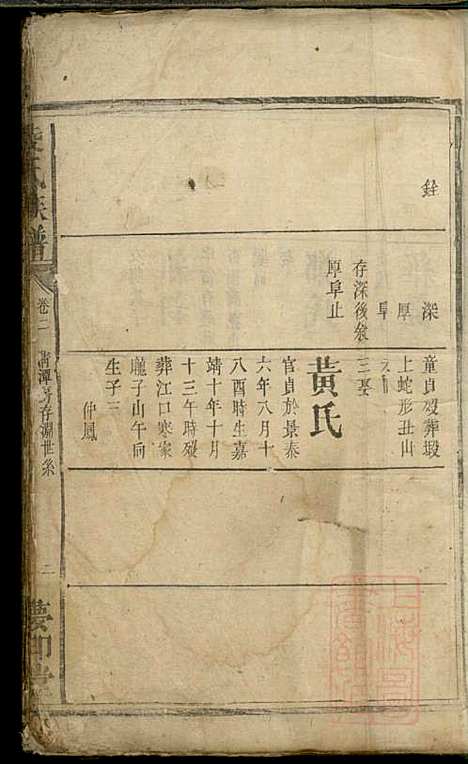 銓
深
厚
阜
存深後名
厚阜止
童貞歿葬塅
上蛇形丑山
未向
三娶
黃氏
官貞於景泰
六年八月十
八酉時生嘉
靖十年十月
十三午時歿
葬江口寒家
壠子山午向
生子三
仲鳳
氏族譜
卷二
房存淵世系
二